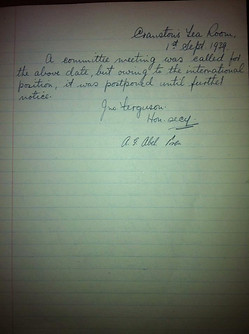 Cranstons Tea Room
1st Sept. 1939
A committee meeting was called for
the above date, but owing to the international
position, it was postponed until further
notice.
Jno. Ferguson.
Hon. secy
A. E. Abel Pres